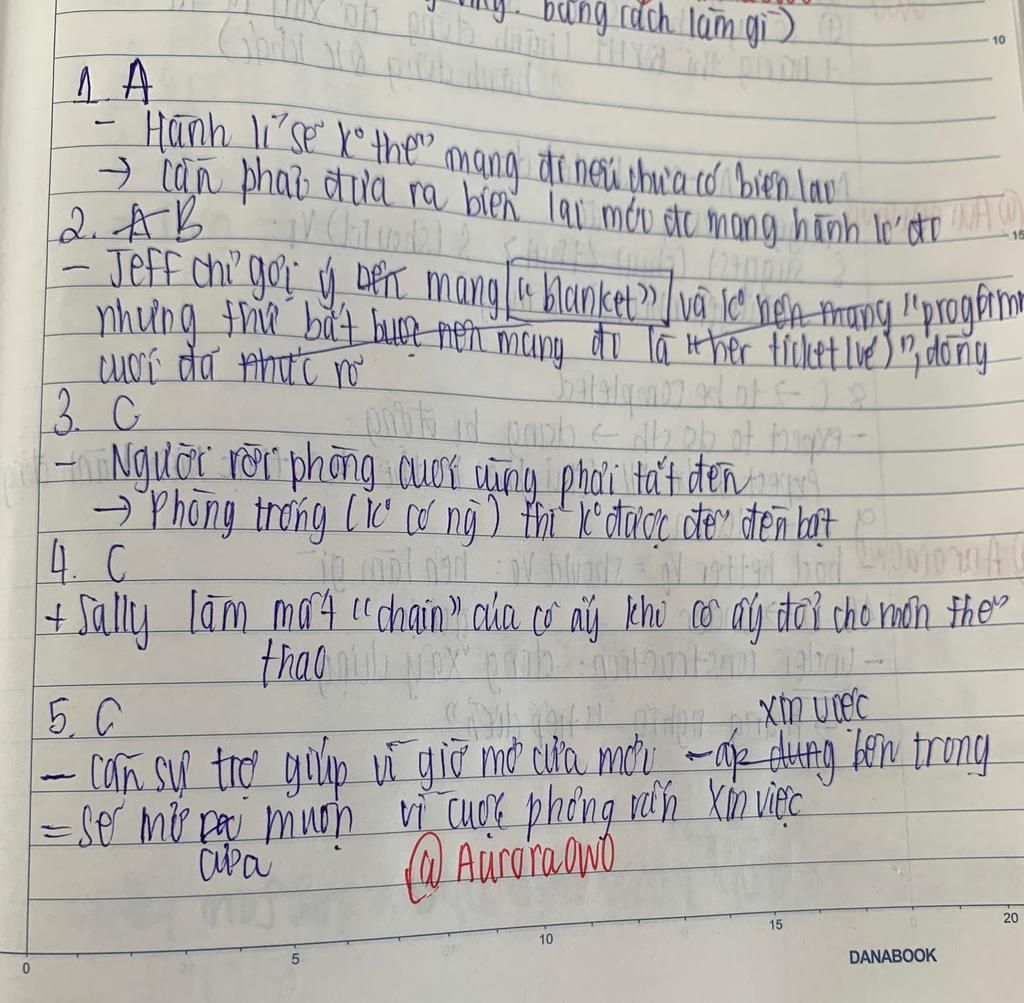 bằng cách làm gì)
10
1. A
- Hành lí sẽ k° thể mang đi nếu chưa có biên lai
→ cần phải đưa ra biên lai mới đc mang hành lí đi
15
2. A B
- Jeff chỉ gợi ý nên mang "blanket" và k° nên mang "program
nhưng thứ bắt buộc nên mang đi là "her ticket (vé)", dòng
cuối đã nhắc rõ
3. C
- Người rời phòng cuối cùng phải tắt đèn
→ Phòng trống (k° có ng) thì k° được để đèn bật
4. C
+ Sally làm mất "chain" của cô ấy khi cô ấy đổi cho môn thể
thao
5. C
xin việc
- cần sự trợ giúp vì giờ mở cửa mới - áp dụng bên trong
= sẽ mở muộn vì cuộc phỏng vấn xin việc
cửa
@ AuroraOwO
0 5 10 15 20
DANABOOK